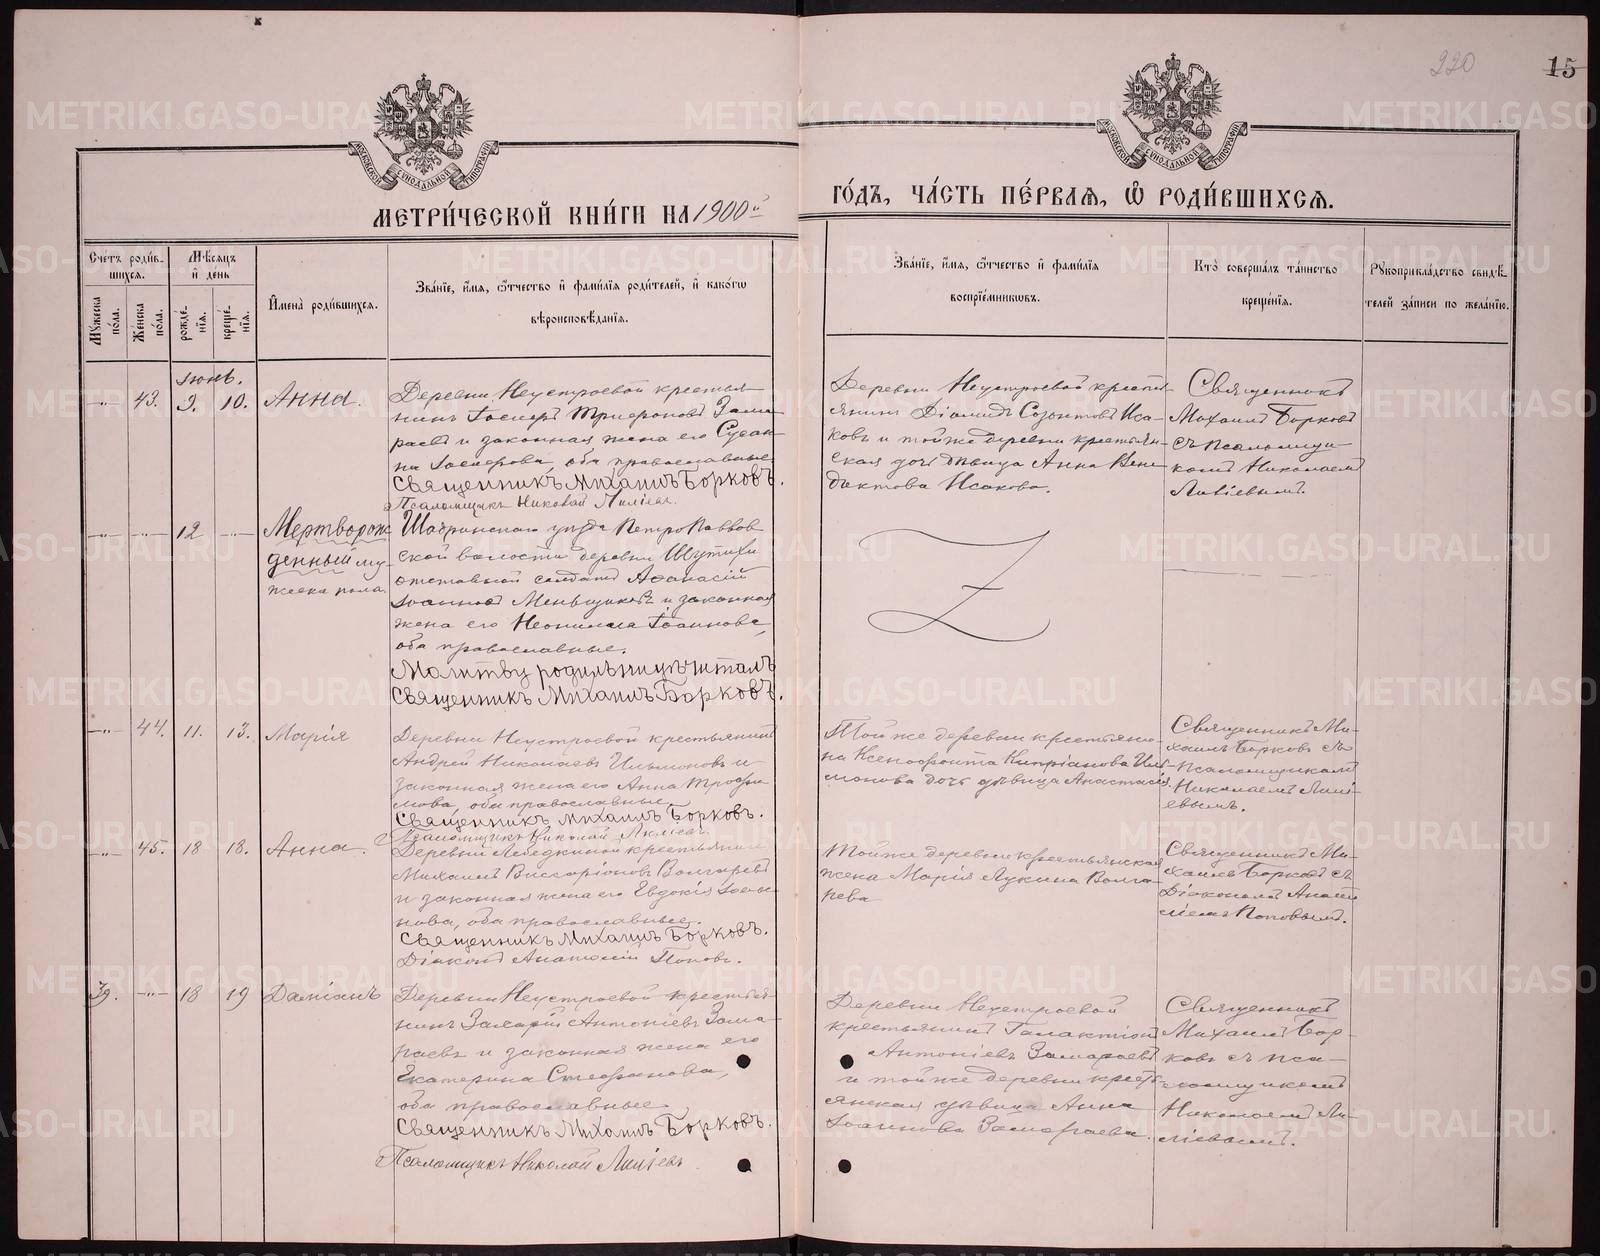 220
15
МОСКОВСКОЙ СѴНОДАЛЬНОЙ ТИПОГРАФІИ
МОСКОВСКОЙ СѴНОДАЛЬНОЙ ТИПОГРАФІИ
МЕТРИ́ЧЕСКОЙ КНИ́ГИ НА 1900й
ГО́ДЪ, ЧА́СТЬ ПЕ́РВАѦ, Ѡ҆ РОДИ́ВШИХСѦ.
Сче́тъ роди́в-
шихсѧ.
Мꙋ́жеска по́ла.
Же́нска по́ла.
Мѣ́сѧцъ
и҆ де́нь
рожде́-
нїѧ.
креще́-
нїѧ.
И҆мена̀ роди́вшихсѧ.
Зва́нїе, и҆́мѧ, ѻ҆́тчество и҆ фами́лїѧ роди́телей, и҆ како́гѡ
вѣроисповѣ́данїѧ.
Зва́нїе, и҆́мѧ, ѻ҆́тчество и҆ фами́лїѧ
воспрїе́мникѡвъ.
Кто̀ соверша́лъ та́инство
креще́нїѧ.
Рꙋкоприкла́дство свидѣ́-
телей за́писи по жела́нїю.
Іюнь.
—„— 43. 9. 10. Анна.
Деревни Неустроевой крестья-
нинъ Іосифъ Трифоновъ Зама-
раевъ и законная жена его Сусан-
на Іосифова, оба православные.
Священникъ Михаилъ Борковъ.
Псаломщикъ Николай Лиліевъ.
Деревни Неустроевой крестья-
янинъ Діомидъ Созонтовъ Иса-
ковъ и той же деревни крестьян-
ская дочь дѣвица Анна Вени-
диктова Исакова.
Священникъ
Михаилъ Борковъ
съ псаломщи-
комъ Николаемъ
Лиліевымъ.
—„— —„— 12 —„— Мертворож
денный му-
жеска пола.
Шадринскаго уѣзда Петропавлов
ской волости деревни Шутихи
отставной солдатъ Афанасій
Іоанновъ Меньщиковъ и законная
жена его Неонилла Іоаннова,
оба православные.
Молитву родильницѣ читалъ
Священникъ Михаилъ Борковъ.
—„— 44. 11. 13. Марія
Деревни Неустроевой крестьянинъ
Андрей Николаевъ Ильиновъ и
законная жена его Анна Трофи
мова, оба православные.
Священникъ Михаилъ Борковъ.
Псаломщикъ Николай Лиліевъ.
Той же деревни крестьяни-
на Ксенофонта Кипріанова
дочь дѣвица Анастасія.
Священникъ Ми-
хаилъ Борковъ съ
псаломщикомъ
Николаемъ Лилі-
евымъ.
—„— 45. 18 18. Анна.
Деревни Лебедкиной крестьянинъ
Михаилъ Виссаріоновъ Волгаревъ
и законная жена его Евдокія
оба православные.
Священникъ Михаилъ Борковъ.
Діаконъ Анатолій Поповъ.
Той же деревни крестьянская
жена Марія Лукина Волга-
рева
Священникъ Ми-
хаилъ Борковъ съ
Діакономъ Анато
ліемъ Поповымъ.
39. —„— 18 19 Даміанъ
Деревни Неустроевой крестья-
нинъ Захарій Антоніевъ Зама-
раевъ и законная жена его
Екатерина Стефанова,
оба православные
Священникъ Михаилъ Борковъ.
Псаломщикъ Николай Лиліевъ.
Деревни Неустроевой
крестьянинъ Галактіонъ
Антоніевъ Замараевъ
и той же деревни кресть-
янская дѣвица Анна
Іоаннова Замараева.
Священникъ
Михаилъ Бор-
ковъ съ пса-
ломщикомъ
Николаемъ Ли-
ліевымъ.
METRIKI.GASO-URAL.RU